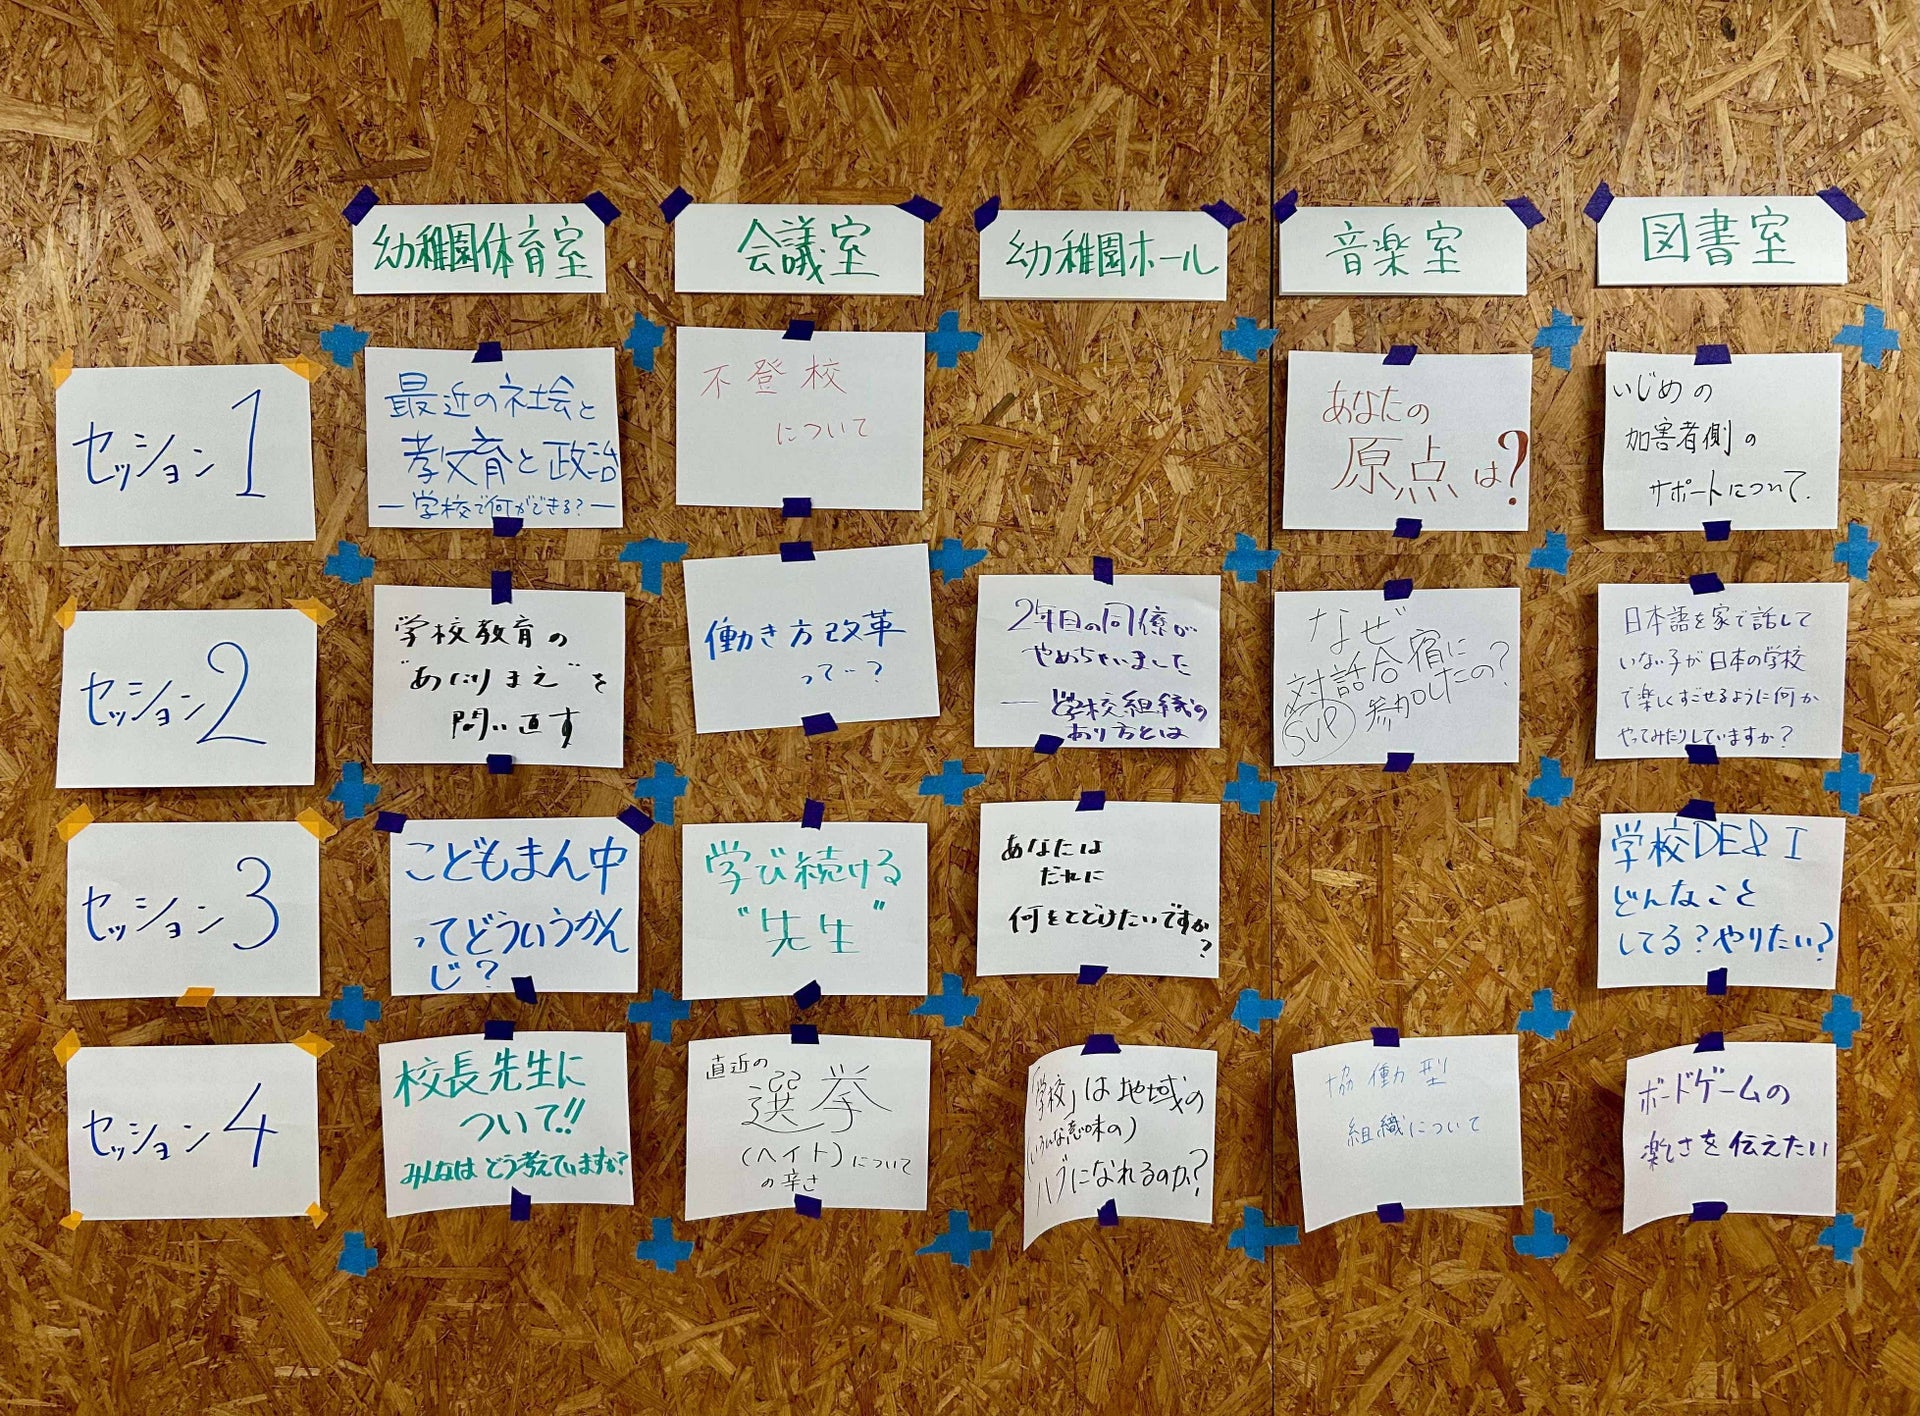 幼稚園体育室
会議室
幼稚園ホール
音楽室
図書室
セッション1
最近の社会と
教育と政治
―学校で何ができる?―
不登校
について
あなたの
原点は?
いじめの
加害者側の
サポートについて.
セッション2
学校教育の
"あたりまえ"を
問い直す
働き方改革
って…?
2年目の同僚が
やめちゃいました
―学校組織の
あり方とは
なぜ
対話合宿に
参加したの?
SVP
日本語を家で話して
いない子が日本の学校
で楽しくすごせるように何か
やってみたりしていますか?
セッション3
こどもまん中
ってどういうかん
じ?
学び続ける
"先生"
あなたは
だれに
何をとどけたいですか?
学校DE&I
どんなこと
してる?やりたい?
セッション4
校長先生に
ついて!!
みんなはどう考えていますか?
直近の
選挙
(ヘイト)について
の辛さ
「学校」は地域の
(いろんな意味の)
ハブになれるのか?
協働型
組織について
ボードゲームの
楽しさを伝えたい